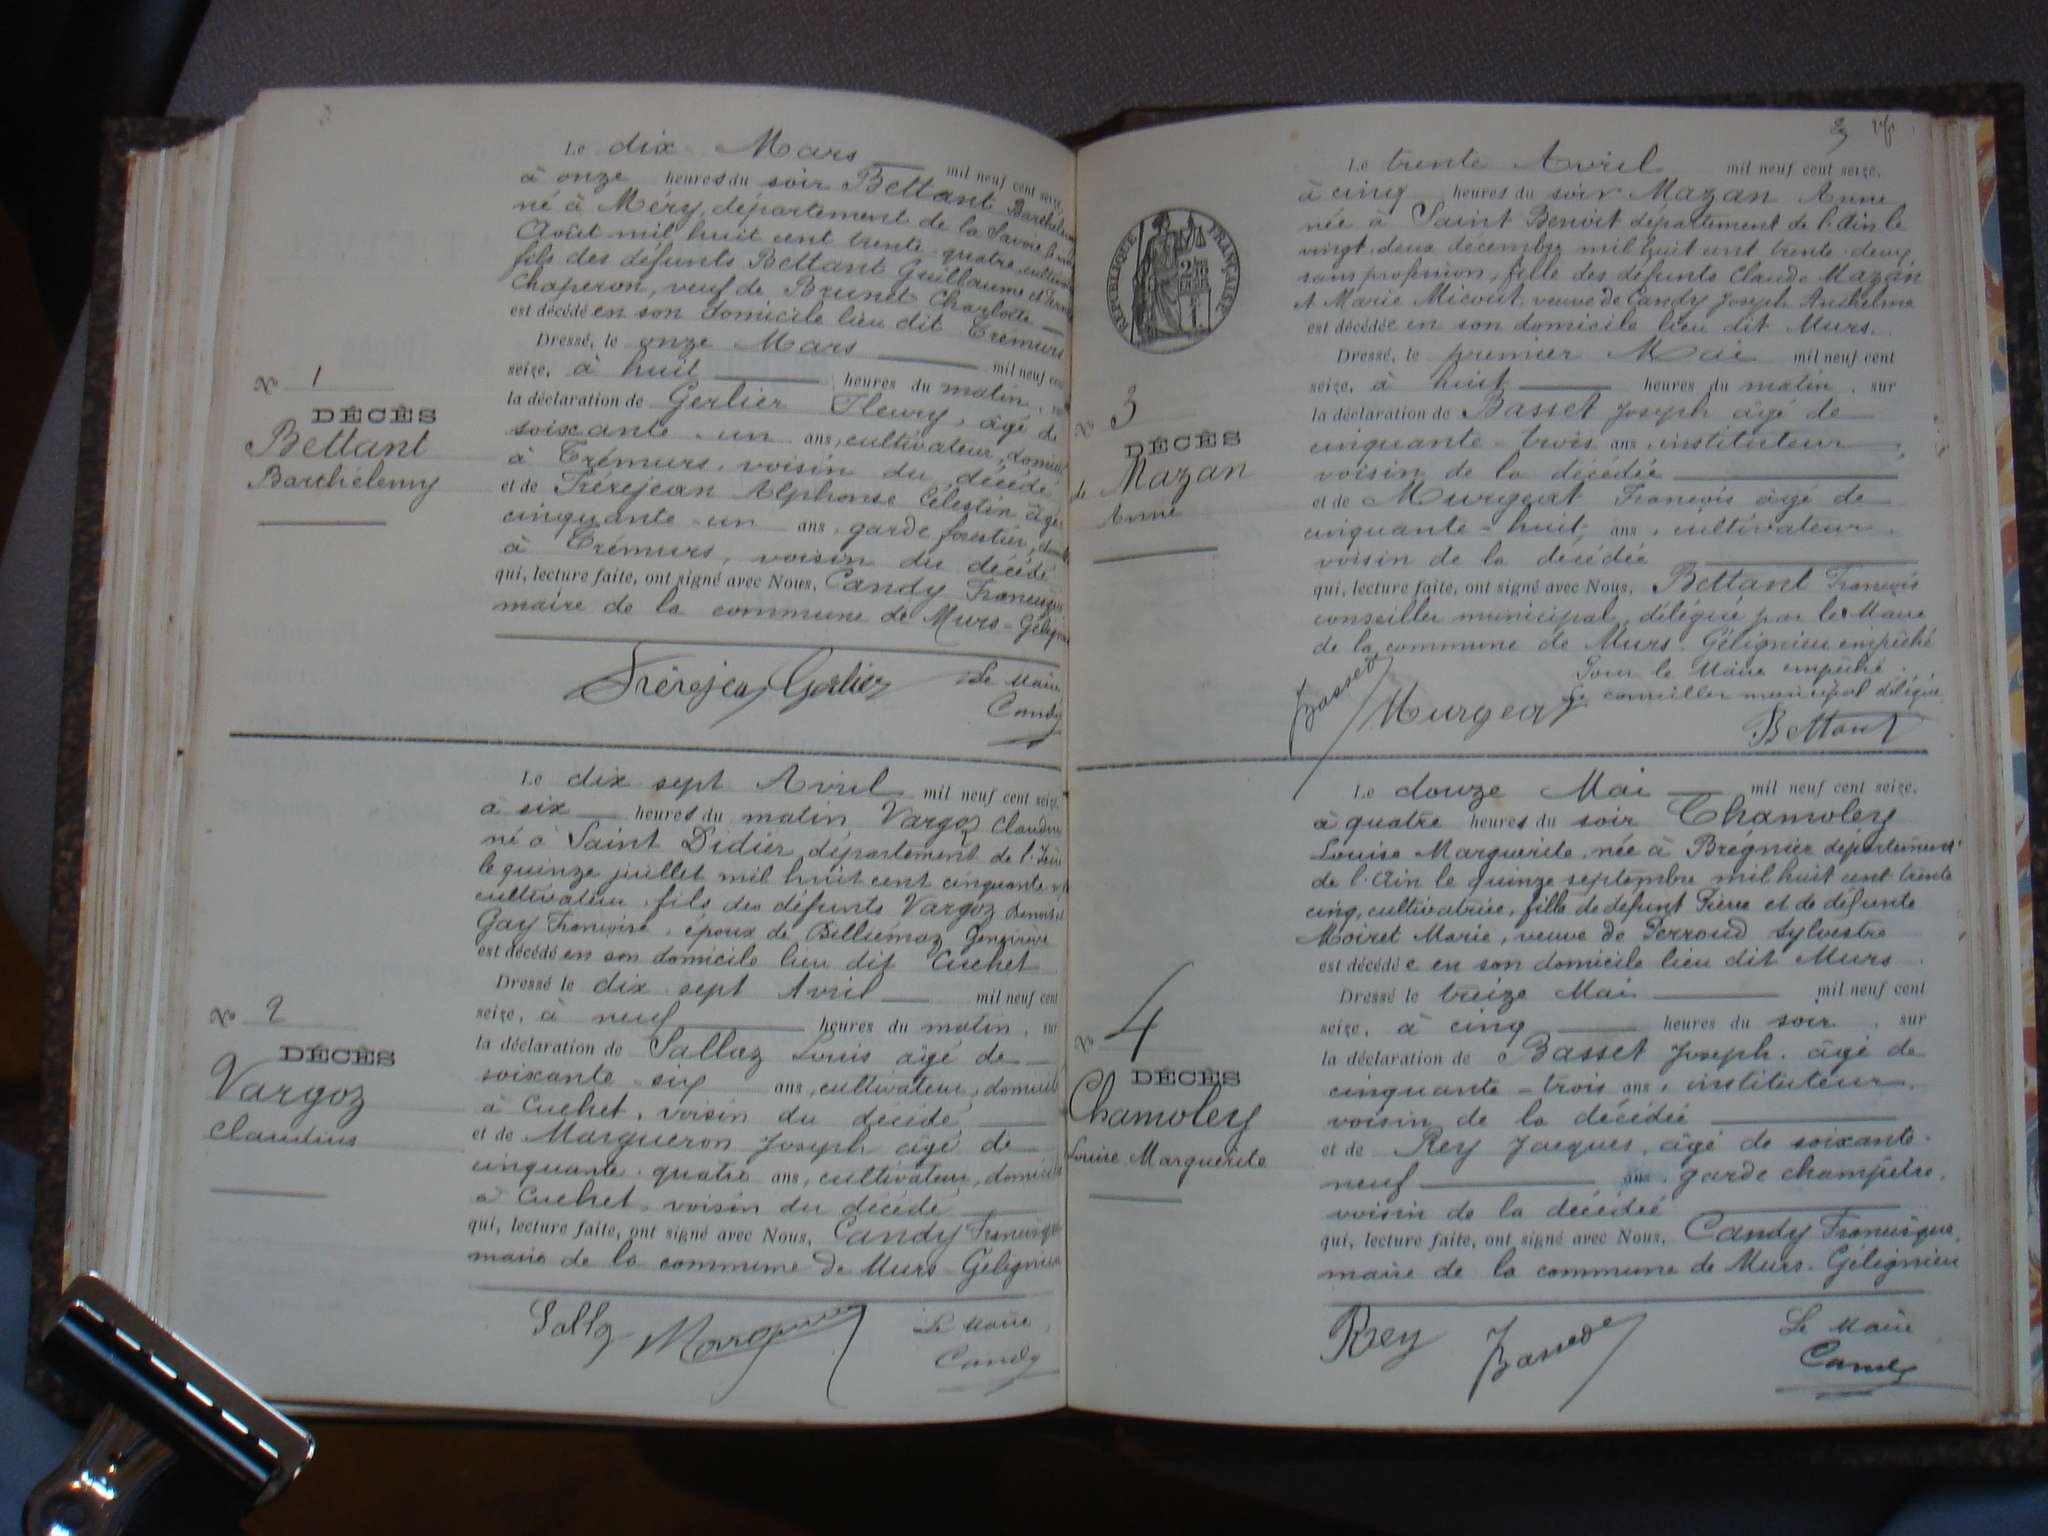 Le dix Mars mil neuf cent seize,
à onze heures du soir Bettant
né à Méry, département de la Savoie le
Août mil huit cent trente-quatre,
fils des défunts Bettant Guillaume et
Chaperon, veuf de Brunet Charlotte
est décédé en son domicile lieu dit Trémurs
Dressé, le onze Mars mil neuf cent
seize, à huit heures du matin,
la déclaration de Gerlier Fleury, âgé de
soixante-un ans, cultivateur,
à Trémurs, voisin du décédé
et de Frérejean Alphonse Célestin âgé
cinquante-un ans, garde forestier,
à Trémurs, voisin du décédé
qui, lecture faite, ont signé avec Nous, Candy
maire de la commune de Murs-
Frérejean Gerlier Le Maire
Candy
No 1
DÉCÈS
Bettant
Barthélemy
Le dix sept Avril mil neuf cent seize,
à six heures du matin Vargoz
né à Saint Didier, département de
le quinze juillet mil huit cent cinquante
cultivateur, fils des défunts Vargoz Benoît et
Gay Françoise, époux de Billiémaz Geneviève
est décédé en son domicile lieu dit Cuchet
Dressé le dix sept Avril mil neuf cent
seize, à neuf heures du matin, sur
la déclaration de Sallaz Louis âgé de
soixante-six ans, cultivateur,
à Cuchet, voisin du décédé
et de Margueron Joseph âgé de
cinquante-quatre ans, cultivateur,
à Cuchet, voisin du décédé
qui, lecture faite, ont signé avec Nous, Candy
maire de la commune de Murs-Gélignieu
Le Maire
Candy
No 2
DÉCÈS
Vargoz
Claudius
3
Le trente Avril mil neuf cent seize,
à cinq heures du soir Mazan Anne
née à Saint Benoit département de l'Ain le
vingt-deux décembre mil huit cent trente-deux,
sans profession, fille des défunts Claude Mazan
et Marie Micout, veuve de Candy Joseph Anthelme
est décédée en son domicile lieu dit Murs.
Dressé, le premier Mai mil neuf cent
seize, à huit heures du matin, sur
la déclaration de Basset Joseph âgé de
cinquante-trois ans, instituteur,
voisin de la décédée
et de Murgeat François âgé de
cinquante-huit ans, cultivateur,
voisin de la décédée
qui, lecture faite, ont signé avec Nous, Bettant François
conseiller municipal, délégué par le Maire
de la commune de Murs-Gélignieu empêché
Pour le Maire empêché.
Le conseiller municipal délégué
Basset Murgeat Bettant
RÉPUBLIQUE FRANÇAISE
No 3
DÉCÈS
de Mazan
Anne
Le douze Mai mil neuf cent seize,
à quatre heures du soir Chamoley
Louise Marguerite, née à Brégnier département
de l'Ain le quinze septembre mil huit cent trente
cinq, cultivatrice, fille de défunt Pierre et de défunte
Moiret Marie, veuve de Perroud Sylvestre
est décédée en son domicile lieu dit Murs
Dressé le treize Mai mil neuf cent
seize, à cinq heures du soir, sur
la déclaration de Basset Joseph, âgé de
cinquante-trois ans, instituteur,
voisin de la décédée
et de Rey Jacques, âgé de soixante-
neuf ans, garde champêtre,
voisin de la décédée
qui, lecture faite, ont signé avec Nous, Candy Francisque,
maire de la commune de Murs-Gélignieu
Rey Basset Le Maire
Candy
No 4
DÉCÈS
Chamoley
Louise Marguerite